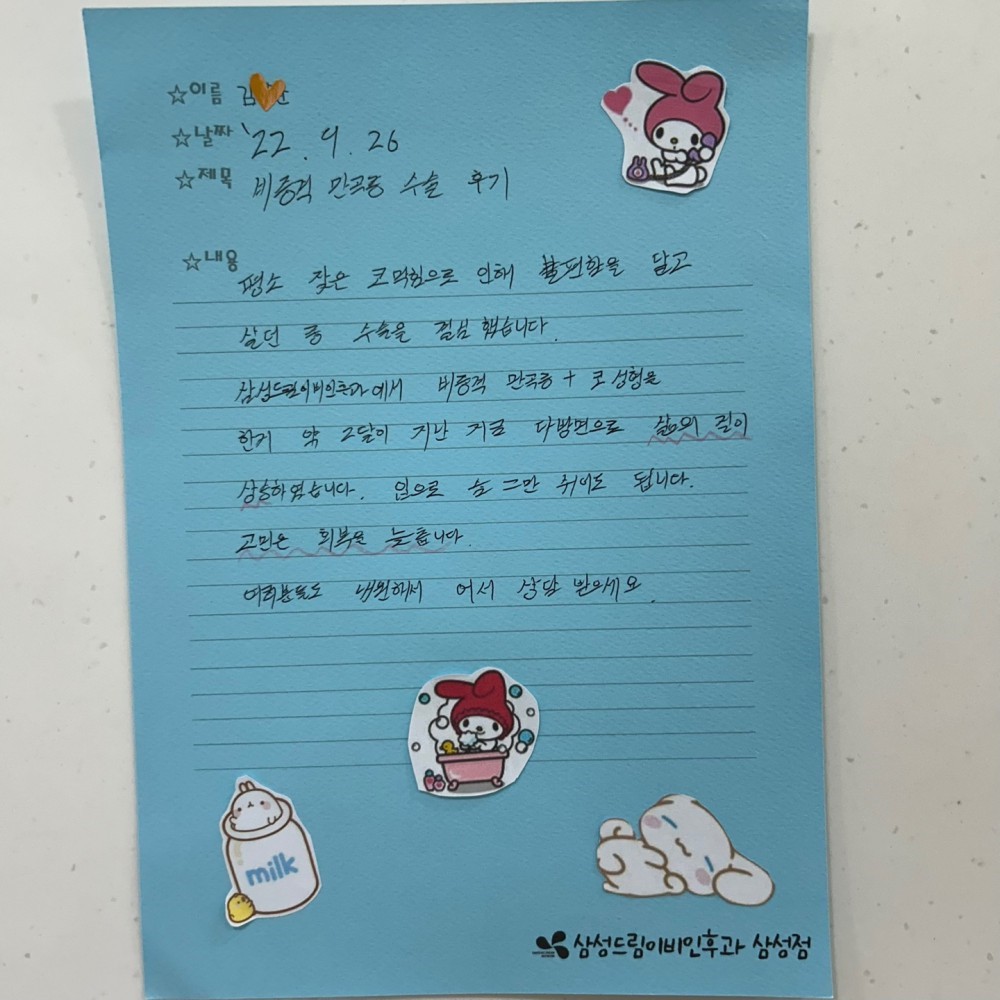 ☆이름 김
☆날짜 '22. 9. 26
☆제목 비중격 만곡증 수술 후기
☆내용 평소 잦은 코막힘으로 인해 불편함을 달고
살던 중 수술을 결심 했습니다.
삼성드림이비인후과에서 비중격 만곡증 + 코 성형을
한지 약 2달이 지난 지금 다방면으로 삶의 질이
상승하였습니다. 입으로 숨 그만 쉬어도 됩니다.
고민은 회복을 늦춥니다.
여러분들도 내원해서 어서 상담 받으세요.
milk
삼성드림이비인후과 삼성점